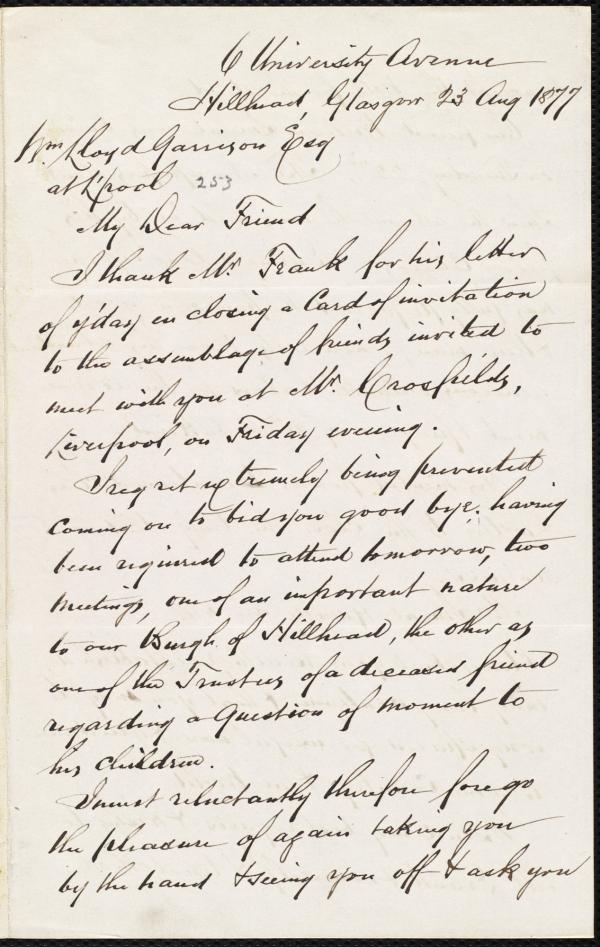 6 University Avenue
Hillhead, Glasgow 23 Aug 1877
Wm Lloyd Garrison Esq
at L'pool 253
My Dear Friend
I thank Mr. Frank for his letter
of y'day enclosing a Card of invitation
to the assemblage of friends invited to
meet with you at Mr. Crosfields,
Liverpool, on Friday evening.
I regret extremely being prevented
coming on to bid you good bye, having
been required to attend tomorrow, two
meetings, one of an important nature
to our Burgh of Hillhead, the other as
one of the Trustees of a deceased friend
regarding a Question of moment to
his children.
I must reluctantly therefore forego
the pleasure of again taking you
by the hand & seeing you off & ask you